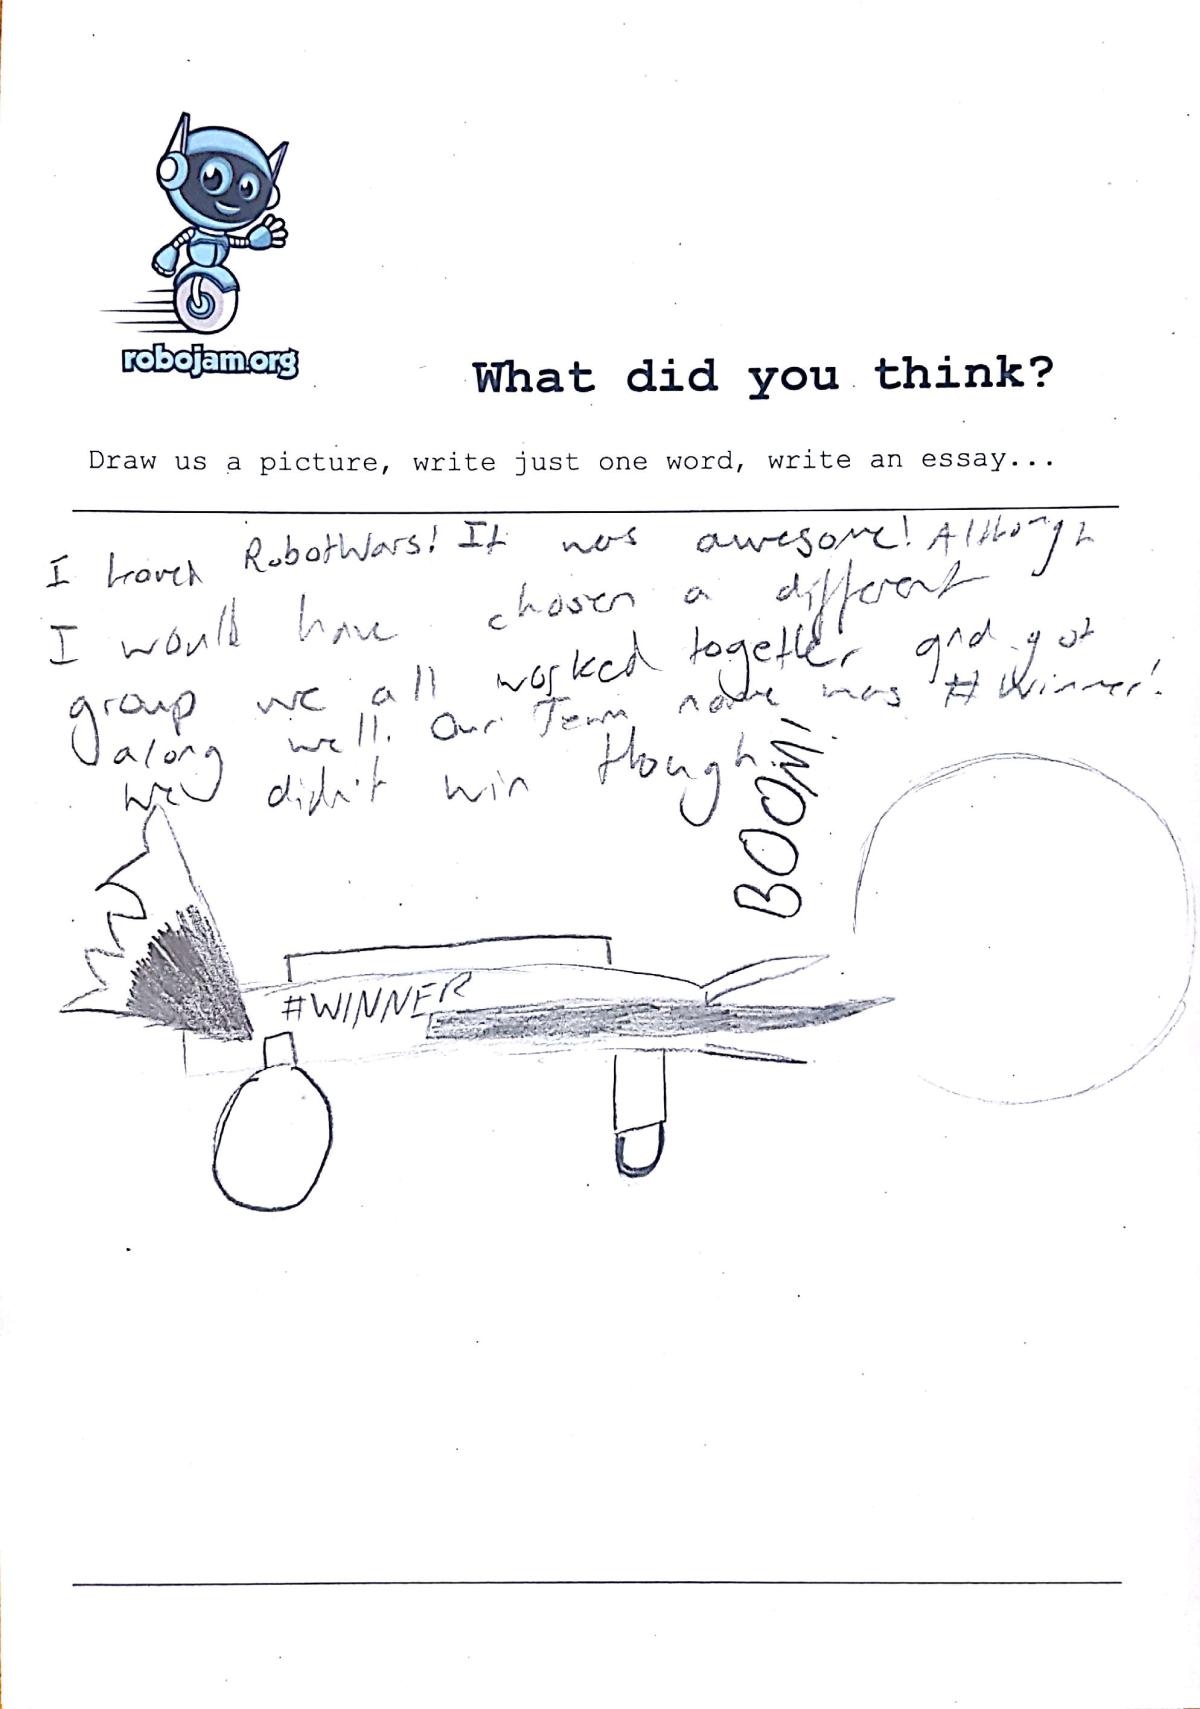 robojam.org
What did you think?
Draw us a picture, write just one word, write an essay...
I RobotWars! It was awesome! Although
I would have chosen a different
group we all worked together and got
along well. Our Team name was #Winner!
We didn't win though.
BOOM!
#WINNER